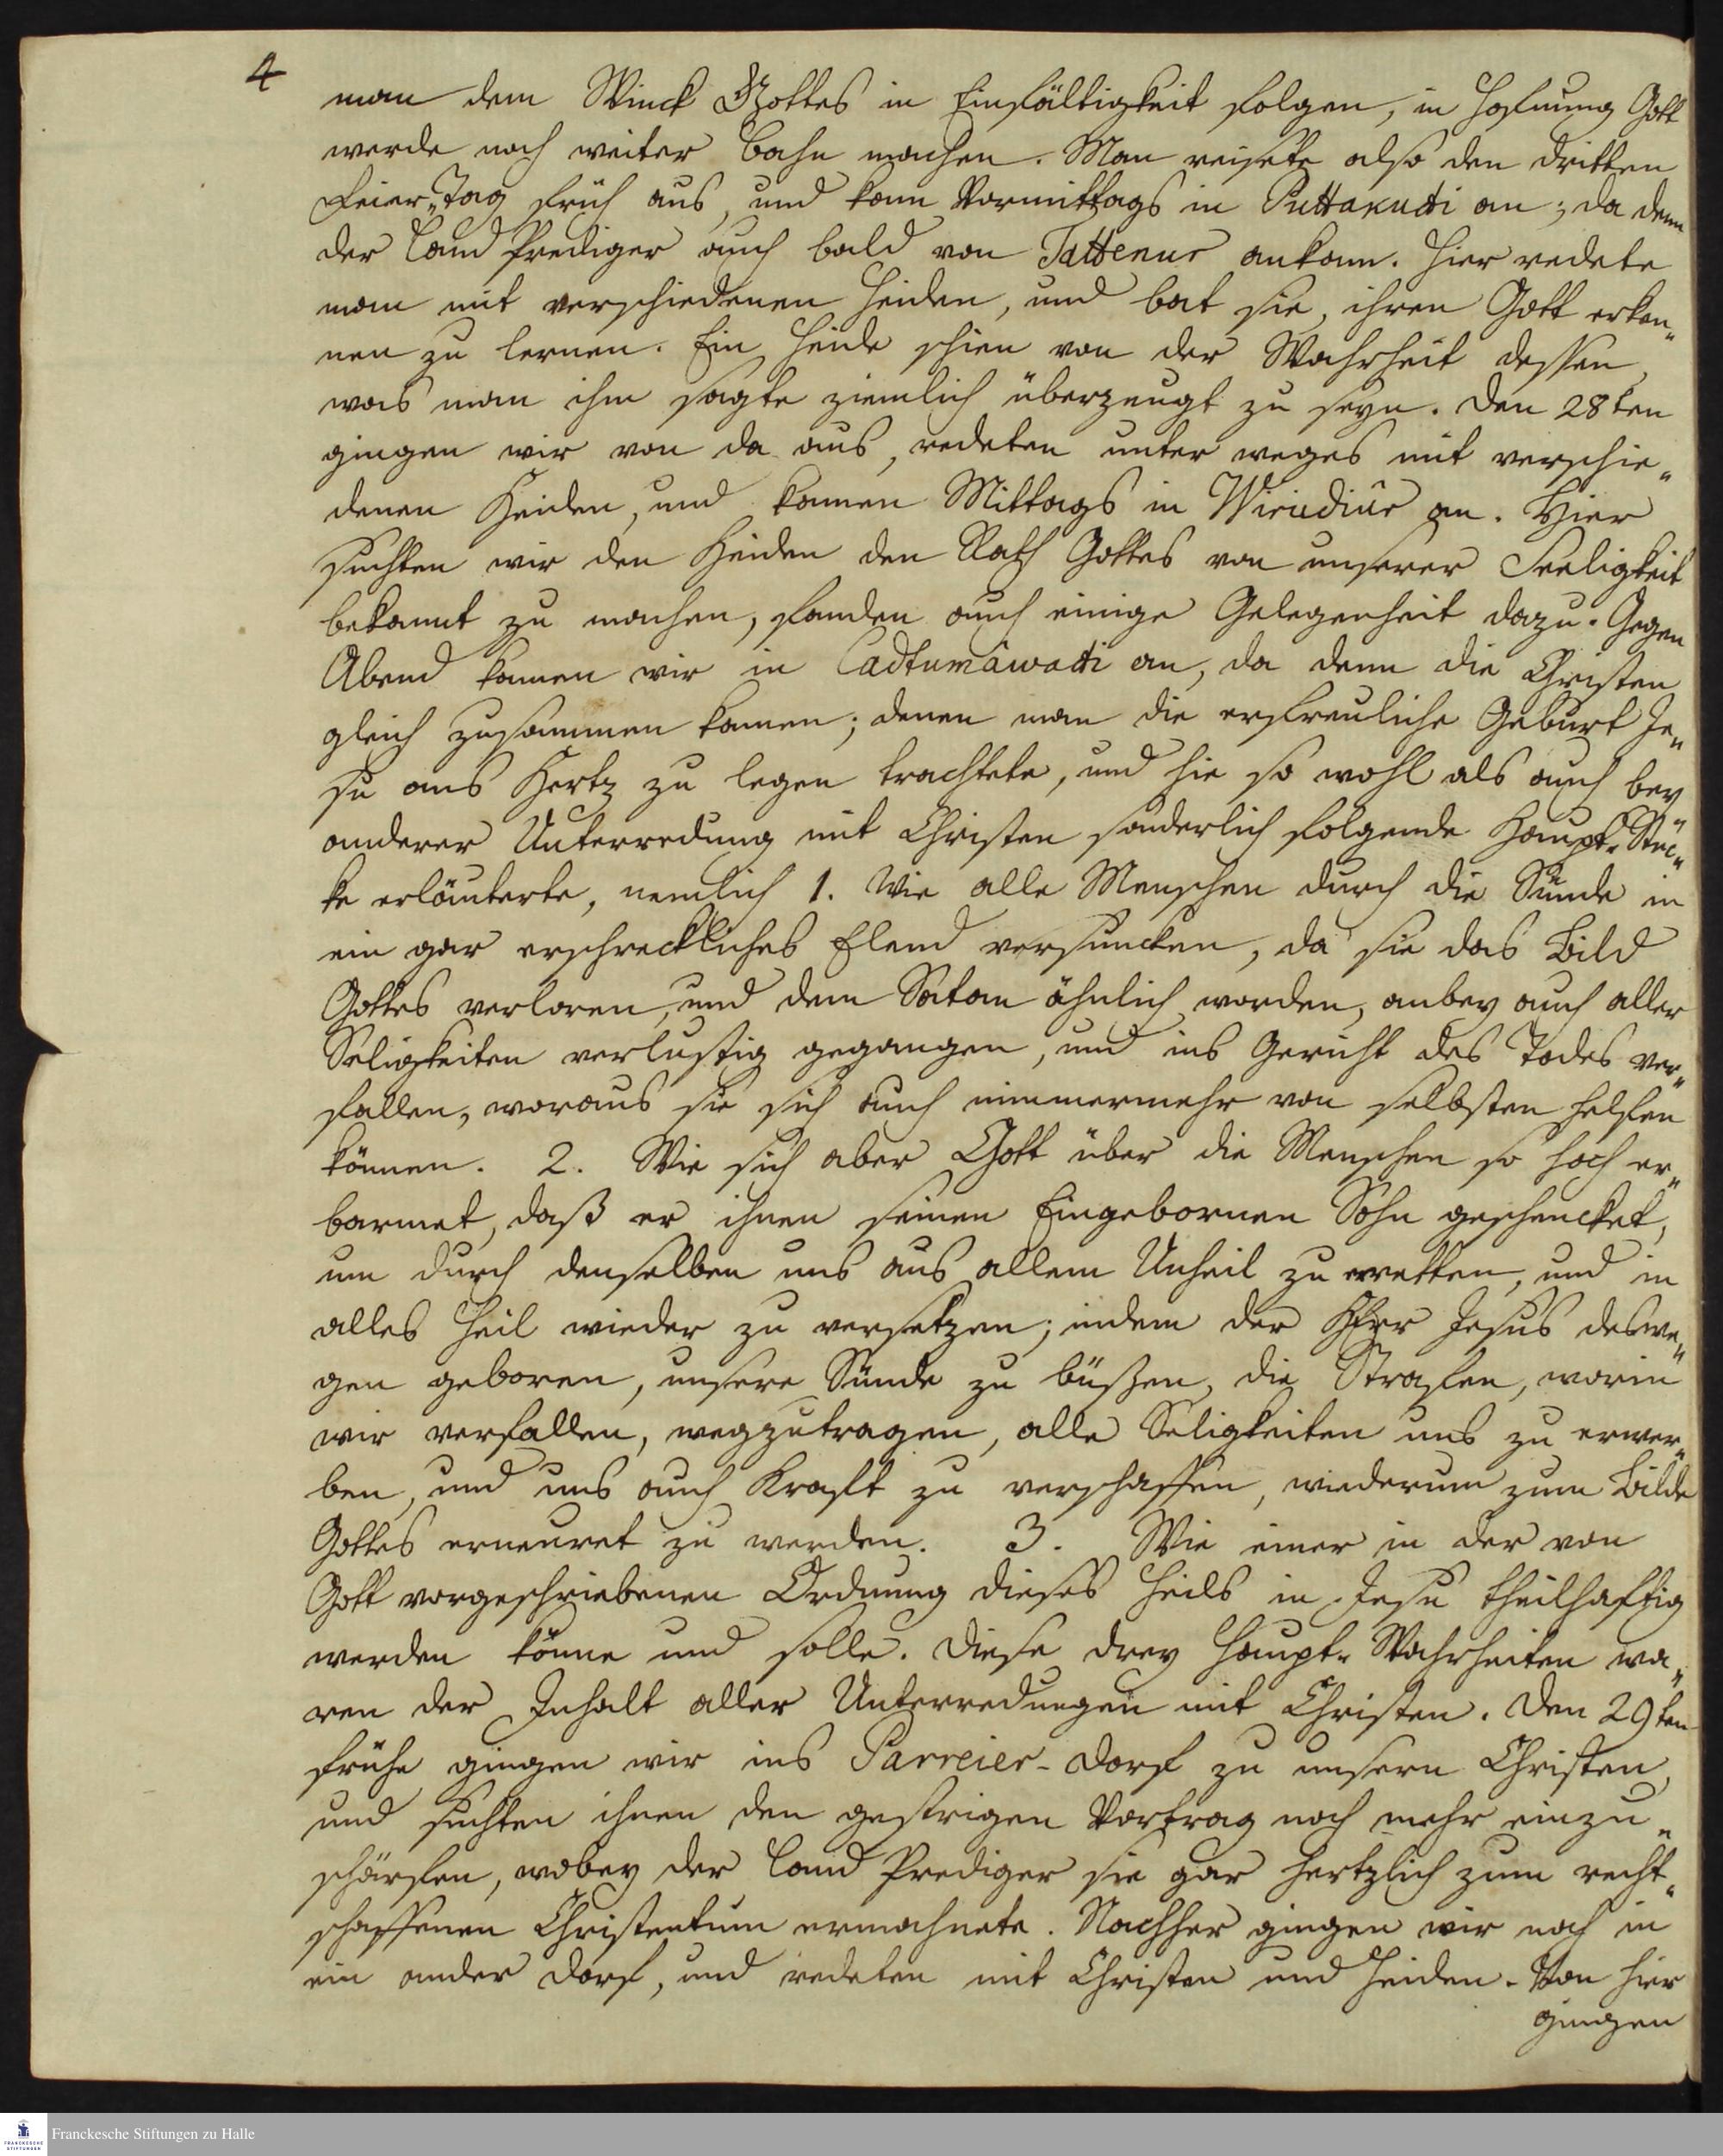 4
man dem Winck Gottes in Einfältigkeit folgen, in Hofnung Gott
werde noch weiter Bahn machen. Man reisete also den dritten
Feier„Tag früh aus, und kam Vormittags in Puttakudi an; da denn
der Land Prediger auch bald von Tattenur ankam. Hier redete
man mit verschiedenen Heiden, und bat sie, ihren Gott erken„
nen zu lernen. Ein Heide schien von der Wahrheit dessen,
was man ihm sagte ziemlich überzeugt zu seyn. Den 28ten
gingen wir von da aus, redeten unter weges mit verschie„
denen Heiden, und kamen Mittags in Wirudiur an. Hier
suchten wir den Heiden den Rath Gottes von unserer Seeligkeit
bekannt zu machen, fanden auch einige Gelegenheit dazu. Gegen
Abend kamen wir in Cadtumâwadi an, da denn die Christen
gleich zusammen kamen; denen man die erfreuliche Geburt Je„
su ans Hertz zu legen trachtete, und hie so wohl als auch bey
anderer Unterredung mit Christen sonderlich folgende Haupt-Stüc„
ke erläuterte, nemlich 1. Wie alle Menschen durch die Sünde in
ein gar erschreckliches Elend versuncken, da sie das Bild
Gottes verloren, und dem Satan ähnlich worden, anbey auch aller
Seligkeiten verlustig gegangen, und ins Gericht des Todes ver„
fallen, woraus sie sich auch nimmermehr von selbsten helfen
können. 2. Wie sich aber Gott über die Menschen so hoch er„
barmet, daß er ihnen seinen Eingebornen Sohn geschencket,
um durch denselben uns aus allem Unheil zu erretten, und in
alles Heil wieder zu versetzen; indem der HErr Jesus deswe„
gen geboren, unsere Sünde zu büßen, die Strafen, worin
wir verfallen, wegzutragen, alle Seligkeiten uns zu erwer„
ben, und uns auch Kraft zu verschaffen, wiederum zum Bilde
Gottes erneuret zu werden. 3. Wie einer in der von
Gott vorgeschriebenen Ordnung dieses Heils in Jesu theilhaftig
werden könne und solle. Diese drey Haupt-Wahrheiten wa„
ren der Inhalt aller Unterredungen mit Christen. Den 29ten
frühe gingen wir ins Parreier-Dorf zu unsern Christen,
und suchten ihnen den gestrigen Vortrag noch mehr einzu„
schärfen, wobey der Land Prediger sie gar hertzlich zum recht„
schaffenen Christentum ermahnete. Nachher gingen wir noch in
ein ander Dorf, und redeten mit Christen und Heiden. Von hier
gingen
FRANCKESCHE STIFTUNGEN
Franckesche Stiftungen zu Halle